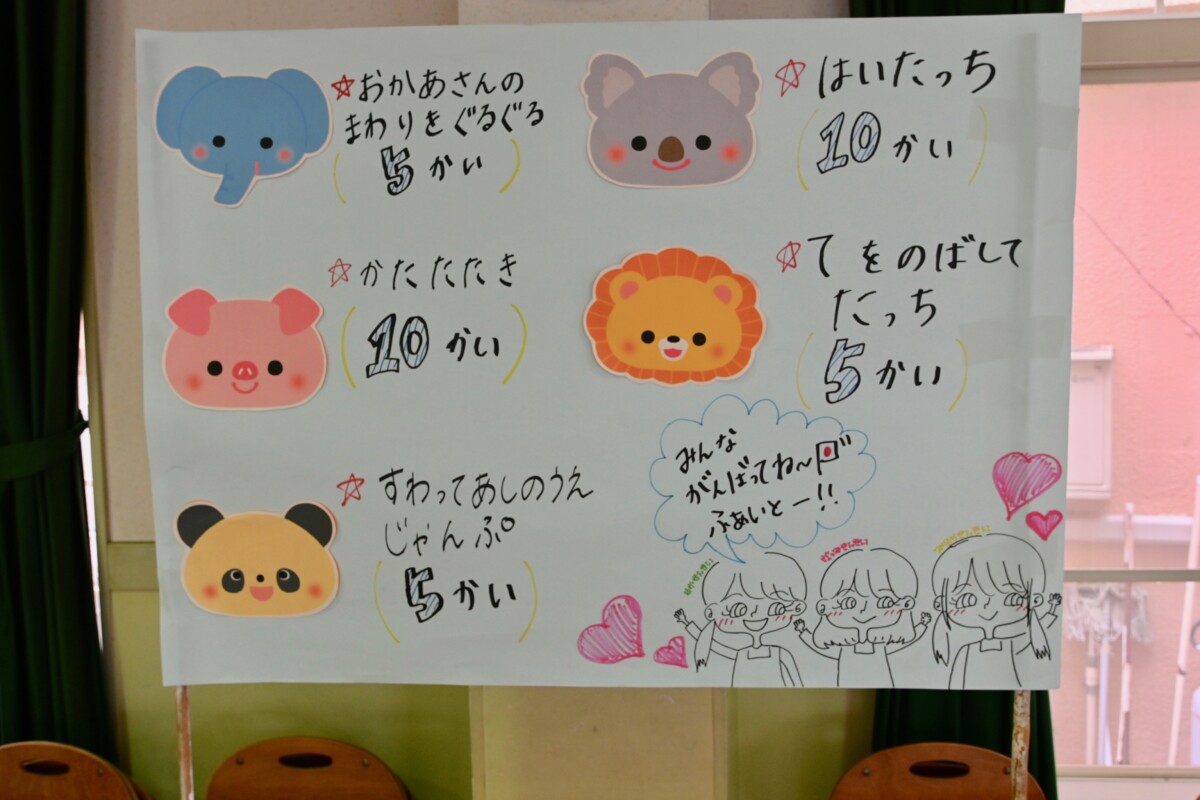 ☆おかあさんの
まわりをぐるぐる
(5かい)
☆かたたたき
(10かい)
☆すわってあしのうえ
じゃんぷ
(5かい)
☆はいたっち
(10かい)
☆てをのばして
たっち
(5かい)
みんな
がんばってね〜
ふぁいとー!!